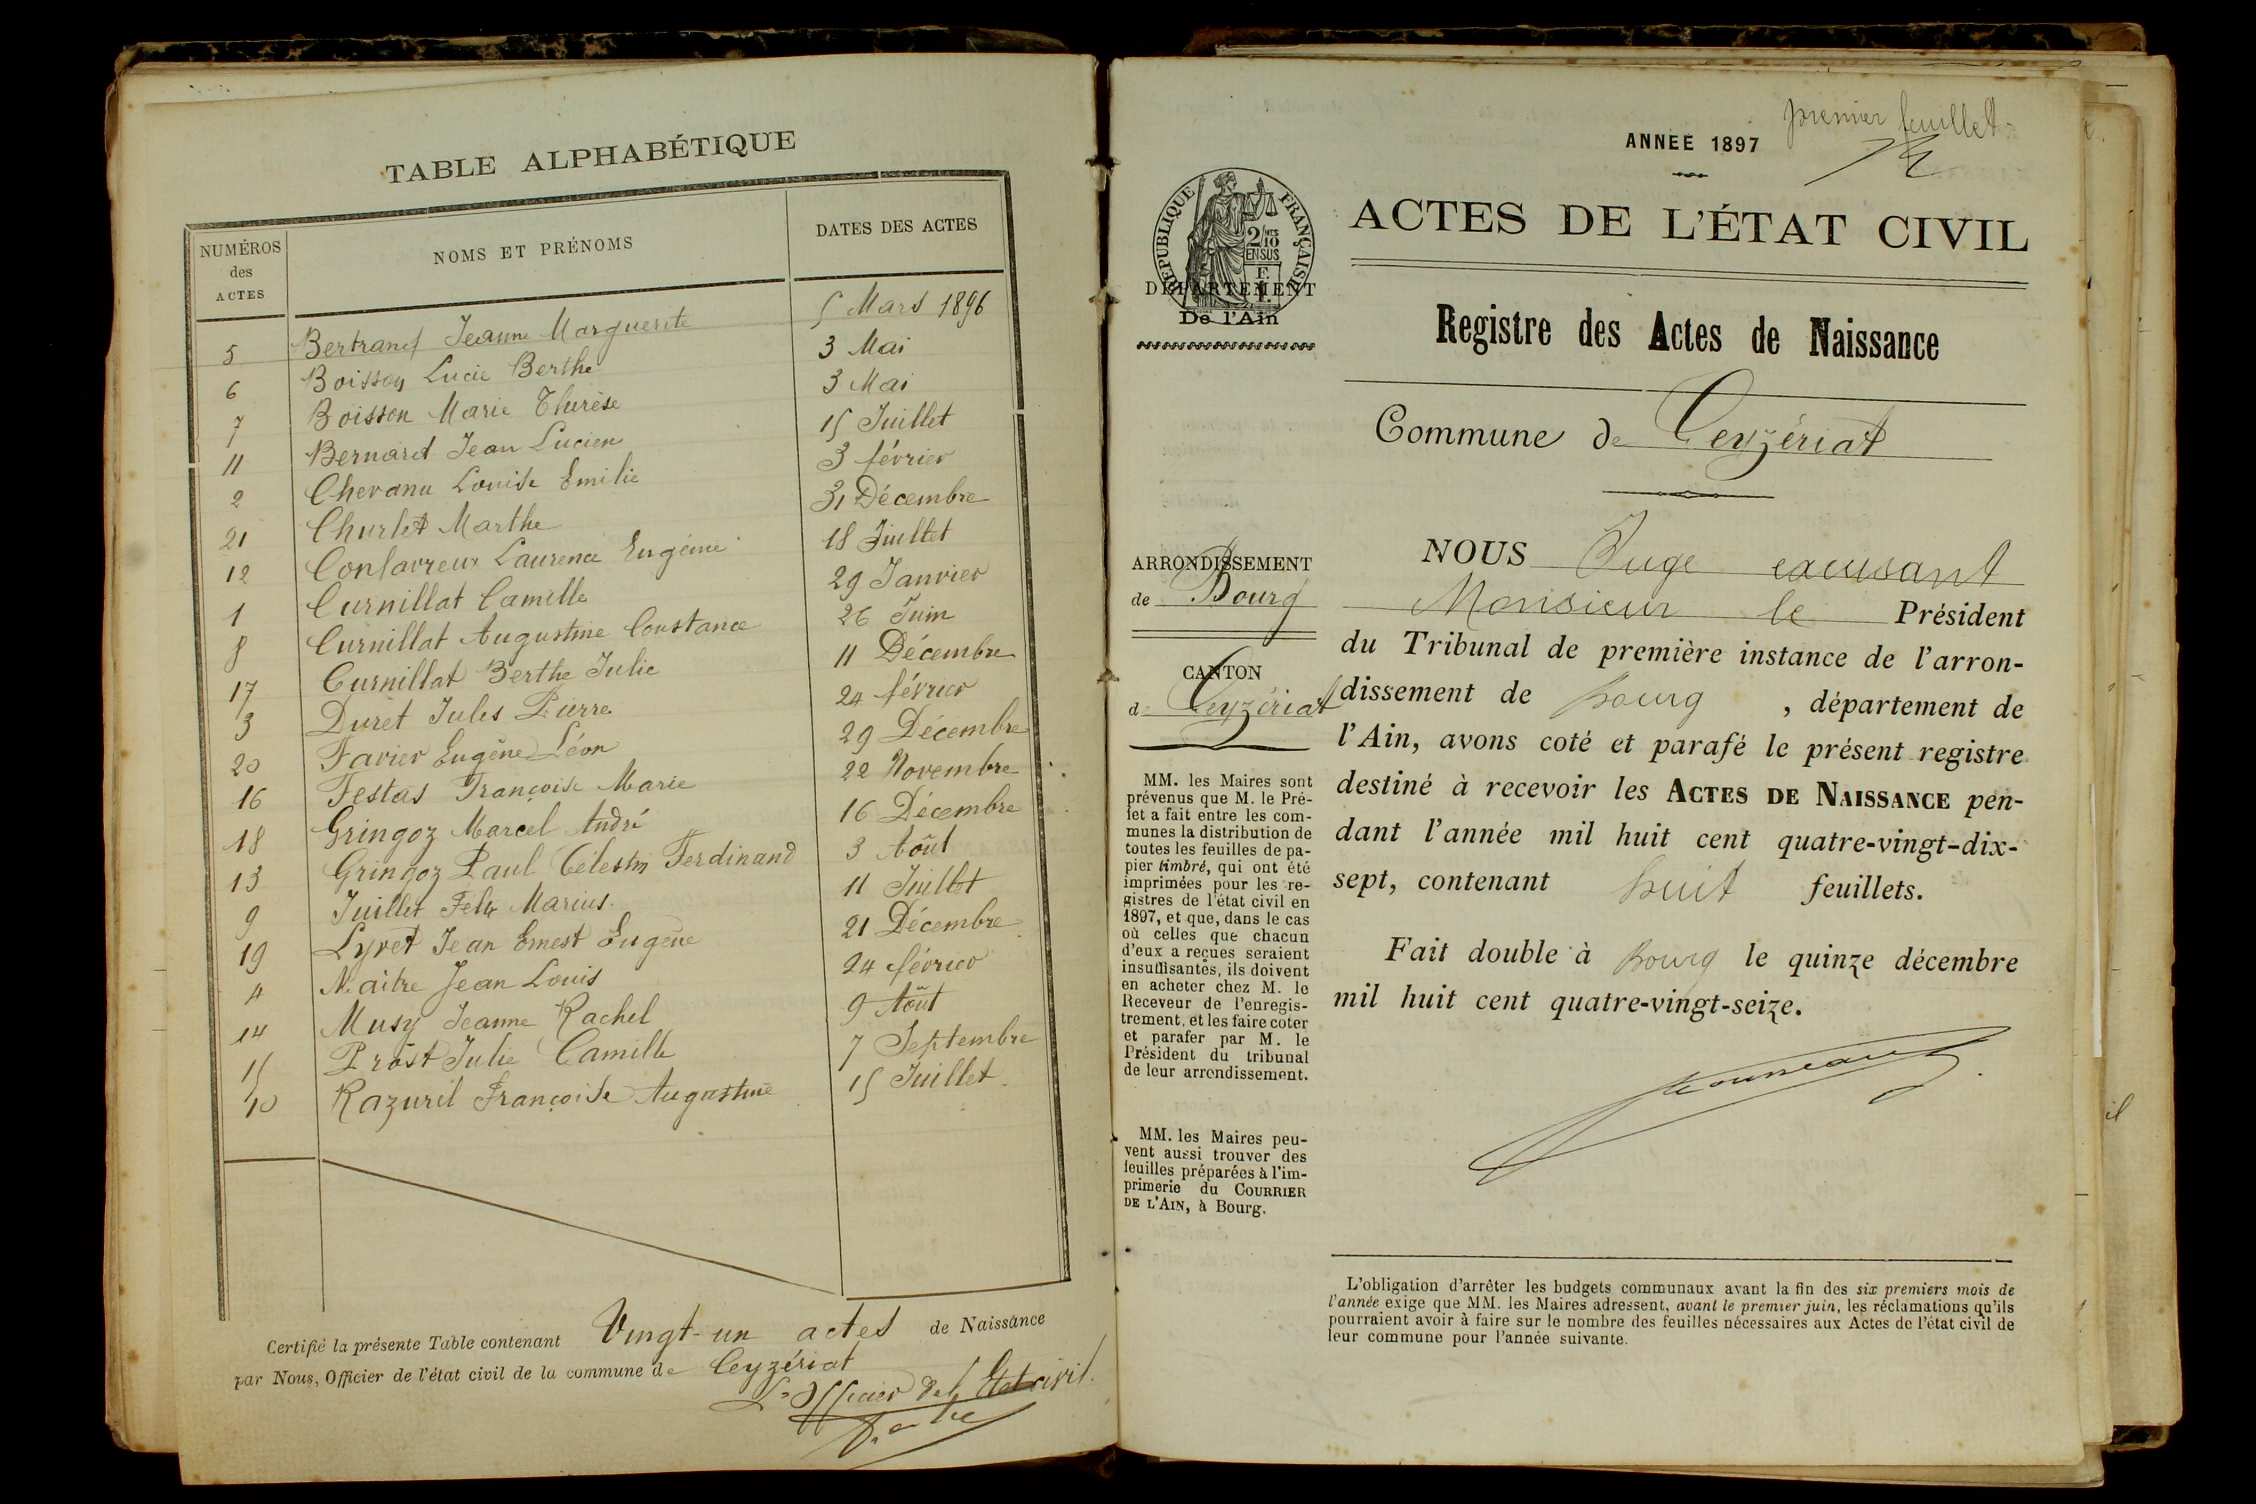 TABLE ALPHABÉTIQUE
NUMÉROS des ACTES NOMS ET PRÉNOMS DATES DES ACTES
5 Bertrand Jeanne Marguerite 5 Mars 1896
6 Boisson Lucie Berthe 3 Mai
7 Boisson Marie Thérèse 3 Mai
11 Bernard Jean Lucien 15 Juillet
2 Chevanu Louise Emilie 3 février
21 Churlet Marthe 31 Décembre
12 Confavreux Laurence Eugénie 18 Juillet
1 Curnillat Camille 29 Janvier
8 Curnillat Augustine Constance 26 Juin
17 Curnillat Berthe Julie 11 Décembre
3 Duret Jules Pierre 24 février
20 Favier Eugène Léon 29 Décembre
16 Festas Françoise Marie 22 Novembre
18 Gringoz Marcel André 16 Décembre
13 Gringoz Paul Célestin Ferdinand 3 Août
9 Juillet Felix Marius 11 Juillet
19 Lyvet Jean Ernest Eugène 21 Décembre
4 Maitre Jean Louis 24 février
14 Musy Jeanne Rachel 9 Août
15 Prost Julie Camille 7 Septembre
10 Razuril Françoise Augustine 15 Juillet
Certifié la présente Table contenant Vingt-un actes de Naissance
par Nous, Officier de l'état civil de la commune de Ceyzériat
L'Officier de l'Etat civil.
premier feuillet
ANNÉE 1897
RÉPUBLIQUE FRANÇAISE
2/10 MES
EN SUS
DÉPARTEMENT
De l'Ain
ACTES DE L'ÉTAT CIVIL
Registre des Actes de Naissance
Commune de Ceyzériat
ARRONDISSEMENT
de Bourg
CANTON
de Ceyzériat
MM. les Maires sont
prévenus que M. le Pré-
fet a fait entre les com-
munes la distribution de
toutes les feuilles de pa-
pier timbré, qui ont été
imprimées pour les re-
gistres de l'état civil en
1897, et que, dans le cas
où celles que chacun
d'eux a reçues seraient
insuffisantes, ils doivent
en acheter chez M. le
Receveur de l'enregis-
trement, et les faire coter
et parafer par M. le
Président du tribunal
de leur arrondissement.
MM. les Maires peu-
vent aussi trouver des
feuilles préparées à l'im-
primerie du COURRIER
DE L'AIN, à Bourg.
NOUS Juge excusant
Monsieur le Président
du Tribunal de première instance de l'arron-
dissement de Bourg, département de
l'Ain, avons coté et parafé le présent registre
destiné à recevoir les ACTES DE NAISSANCE pen-
dant l'année mil huit cent quatre-vingt-dix-
sept, contenant huit feuillets.
Fait double à Bourg le quinze décembre
mil huit cent quatre-vingt-seize.
L'obligation d'arrêter les budgets communaux avant la fin des six premiers mois de
l'année exige que MM. les Maires adressent, avant le premier juin, les réclamations qu'ils
pourraient avoir à faire sur le nombre des feuilles nécessaires aux Actes de l'état civil de
leur commune pour l'année suivante.